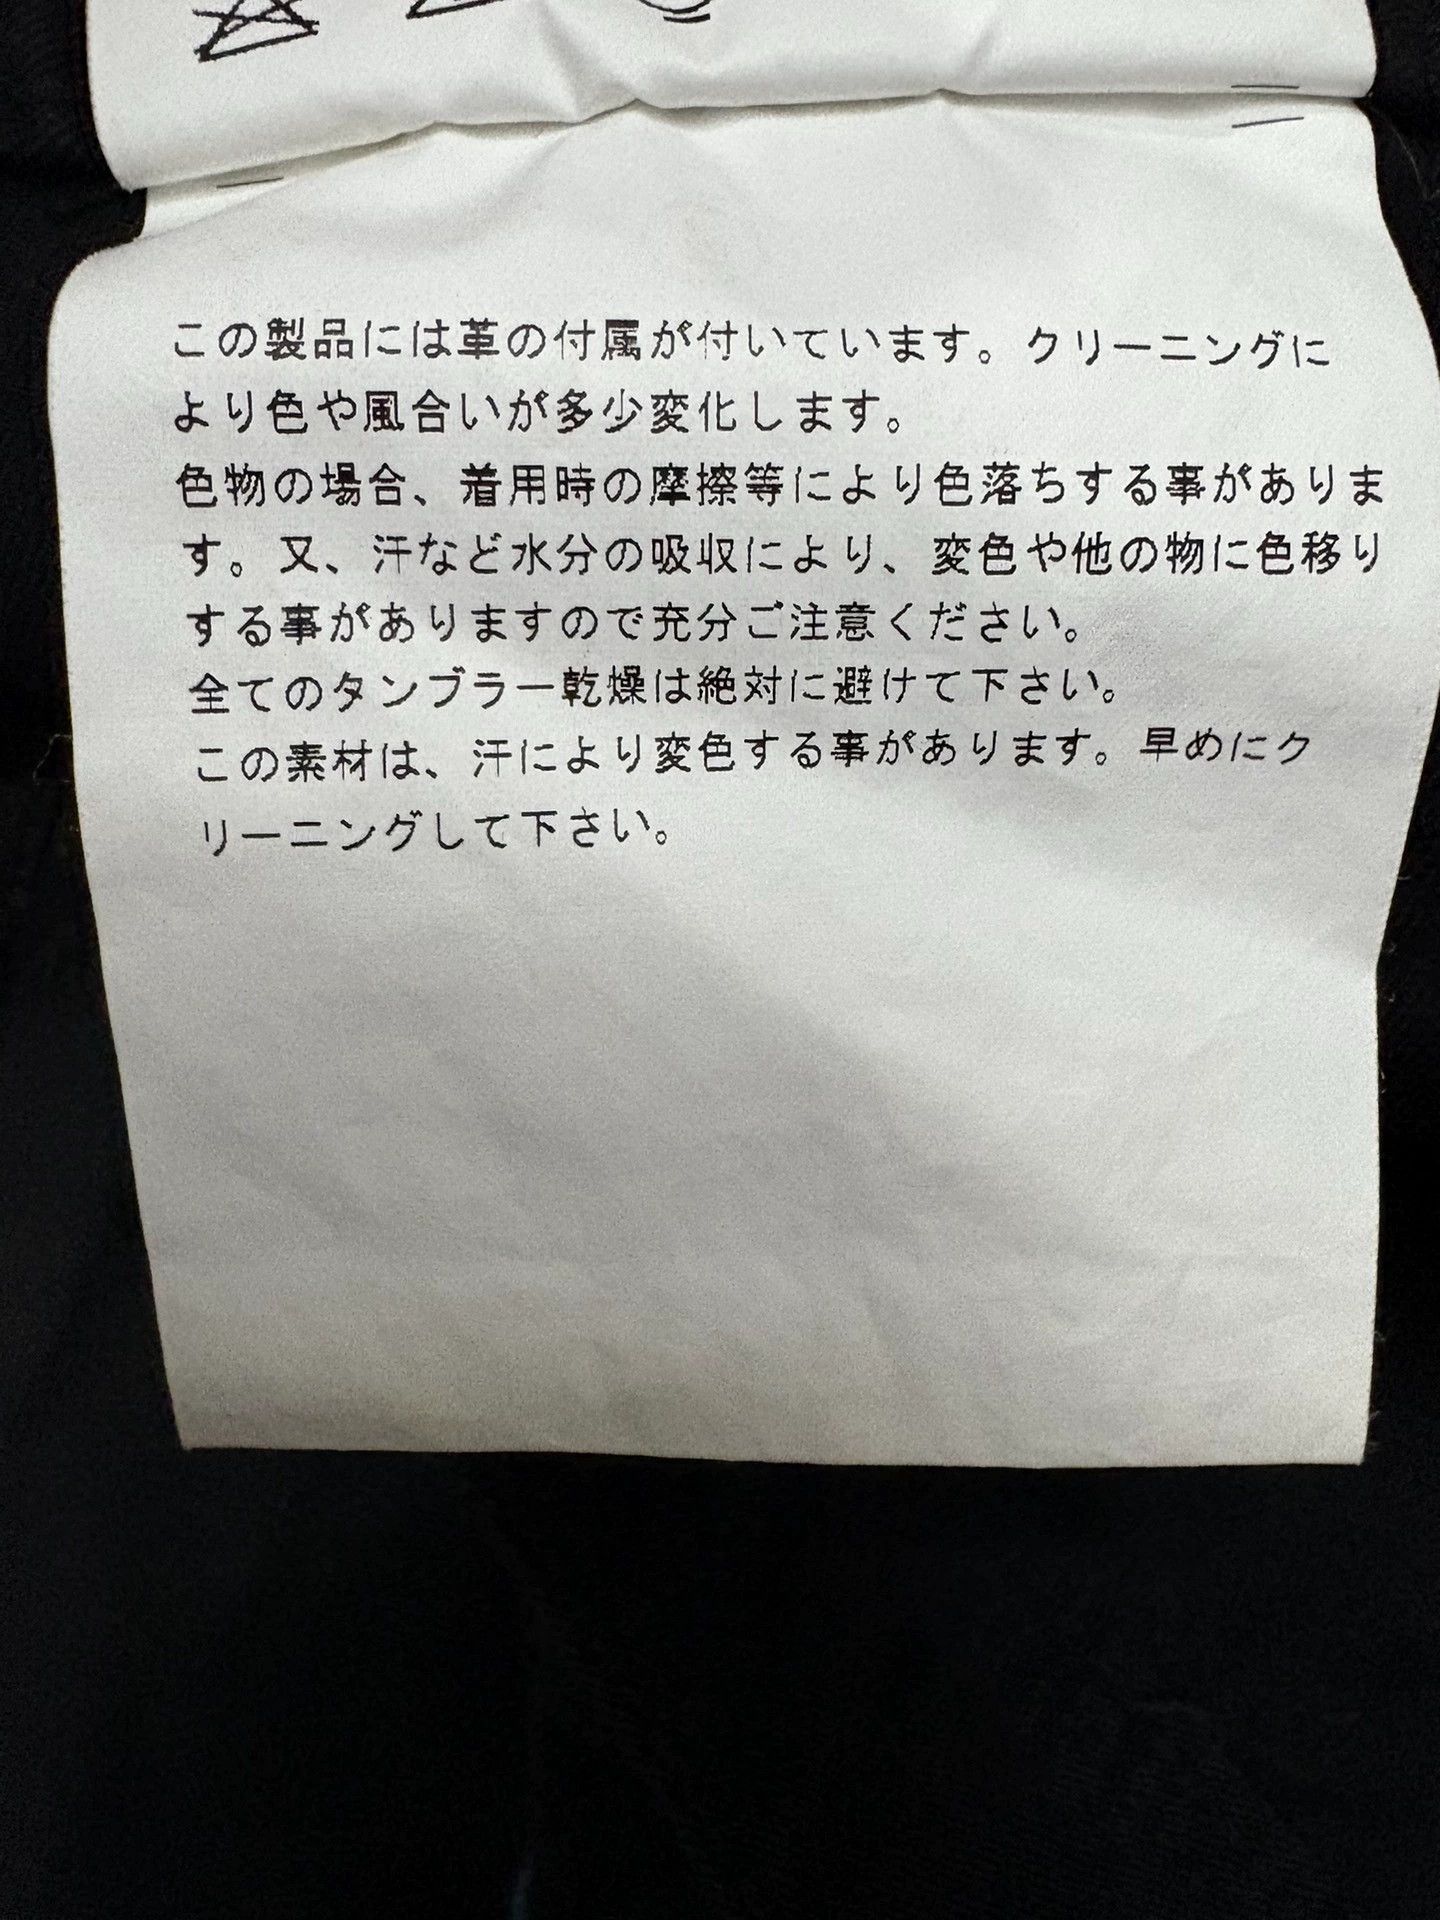 この製品には革の付属が付いています。クリーニングに
より色や風合いが多少変化します。
色物の場合、着用時の摩擦等により色落ちする事がありま
す。又、汗など水分の吸収により、変色や他の物に色移り
する事がありますので充分ご注意ください。
全てのタンブラー乾燥は絶対に避けて下さい。
この素材は、汗により変色する事があります。早めにク
リーニングして下さい。